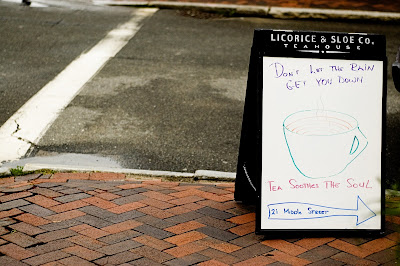 LICORICE & SLOE TEA CO.
TEAHOUSE
DON'T LET THE RAIN
GET YOU DOWN
TEA SOOTHES THE SOUL
121 Middle Street